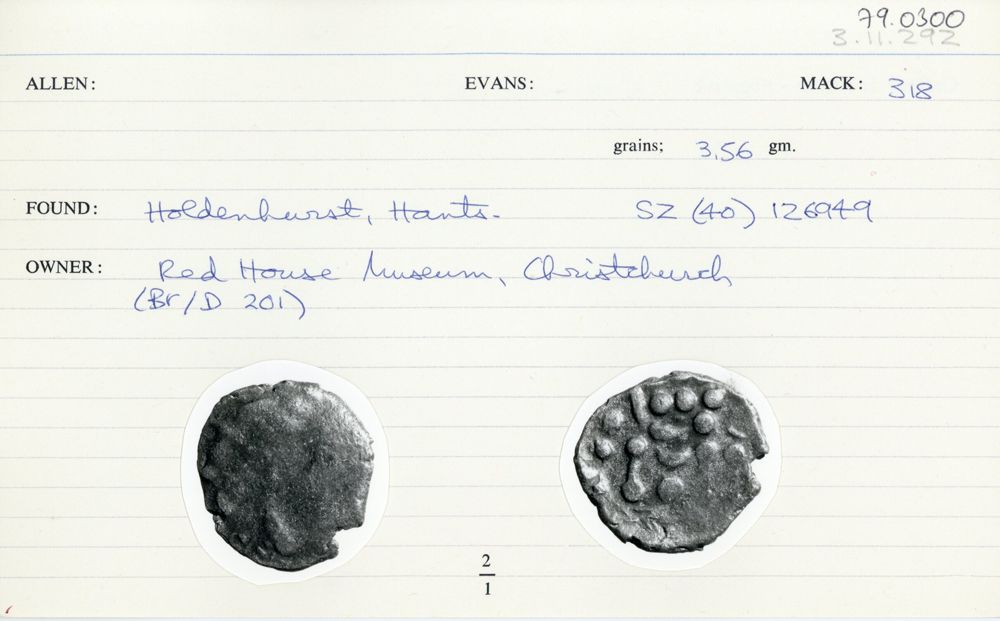 79.0300
3.11.292
ALLEN: EVANS: MACK: 318
grains; 3.56 gm.
FOUND: Holdenhurst, Hants. SZ (40) 126949
OWNER: Red House Museum, Christchurch
(Br/D 201)
2
1